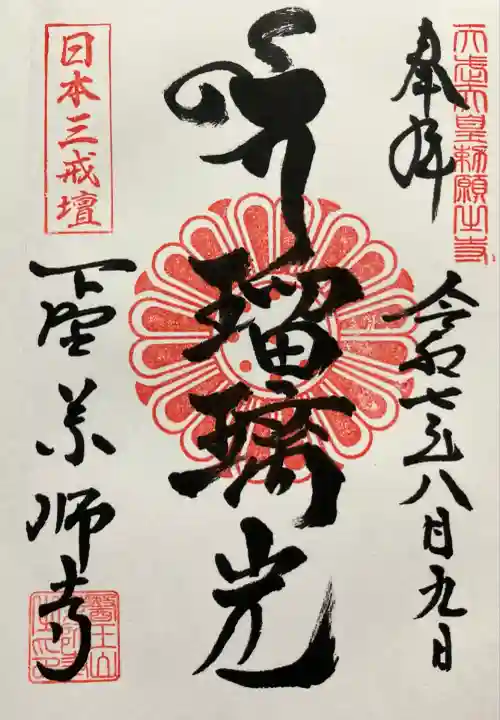 天武天皇勅願之寺
奉拝
令和七年八月九日
瑠璃光
日本三戒壇
下野薬師寺